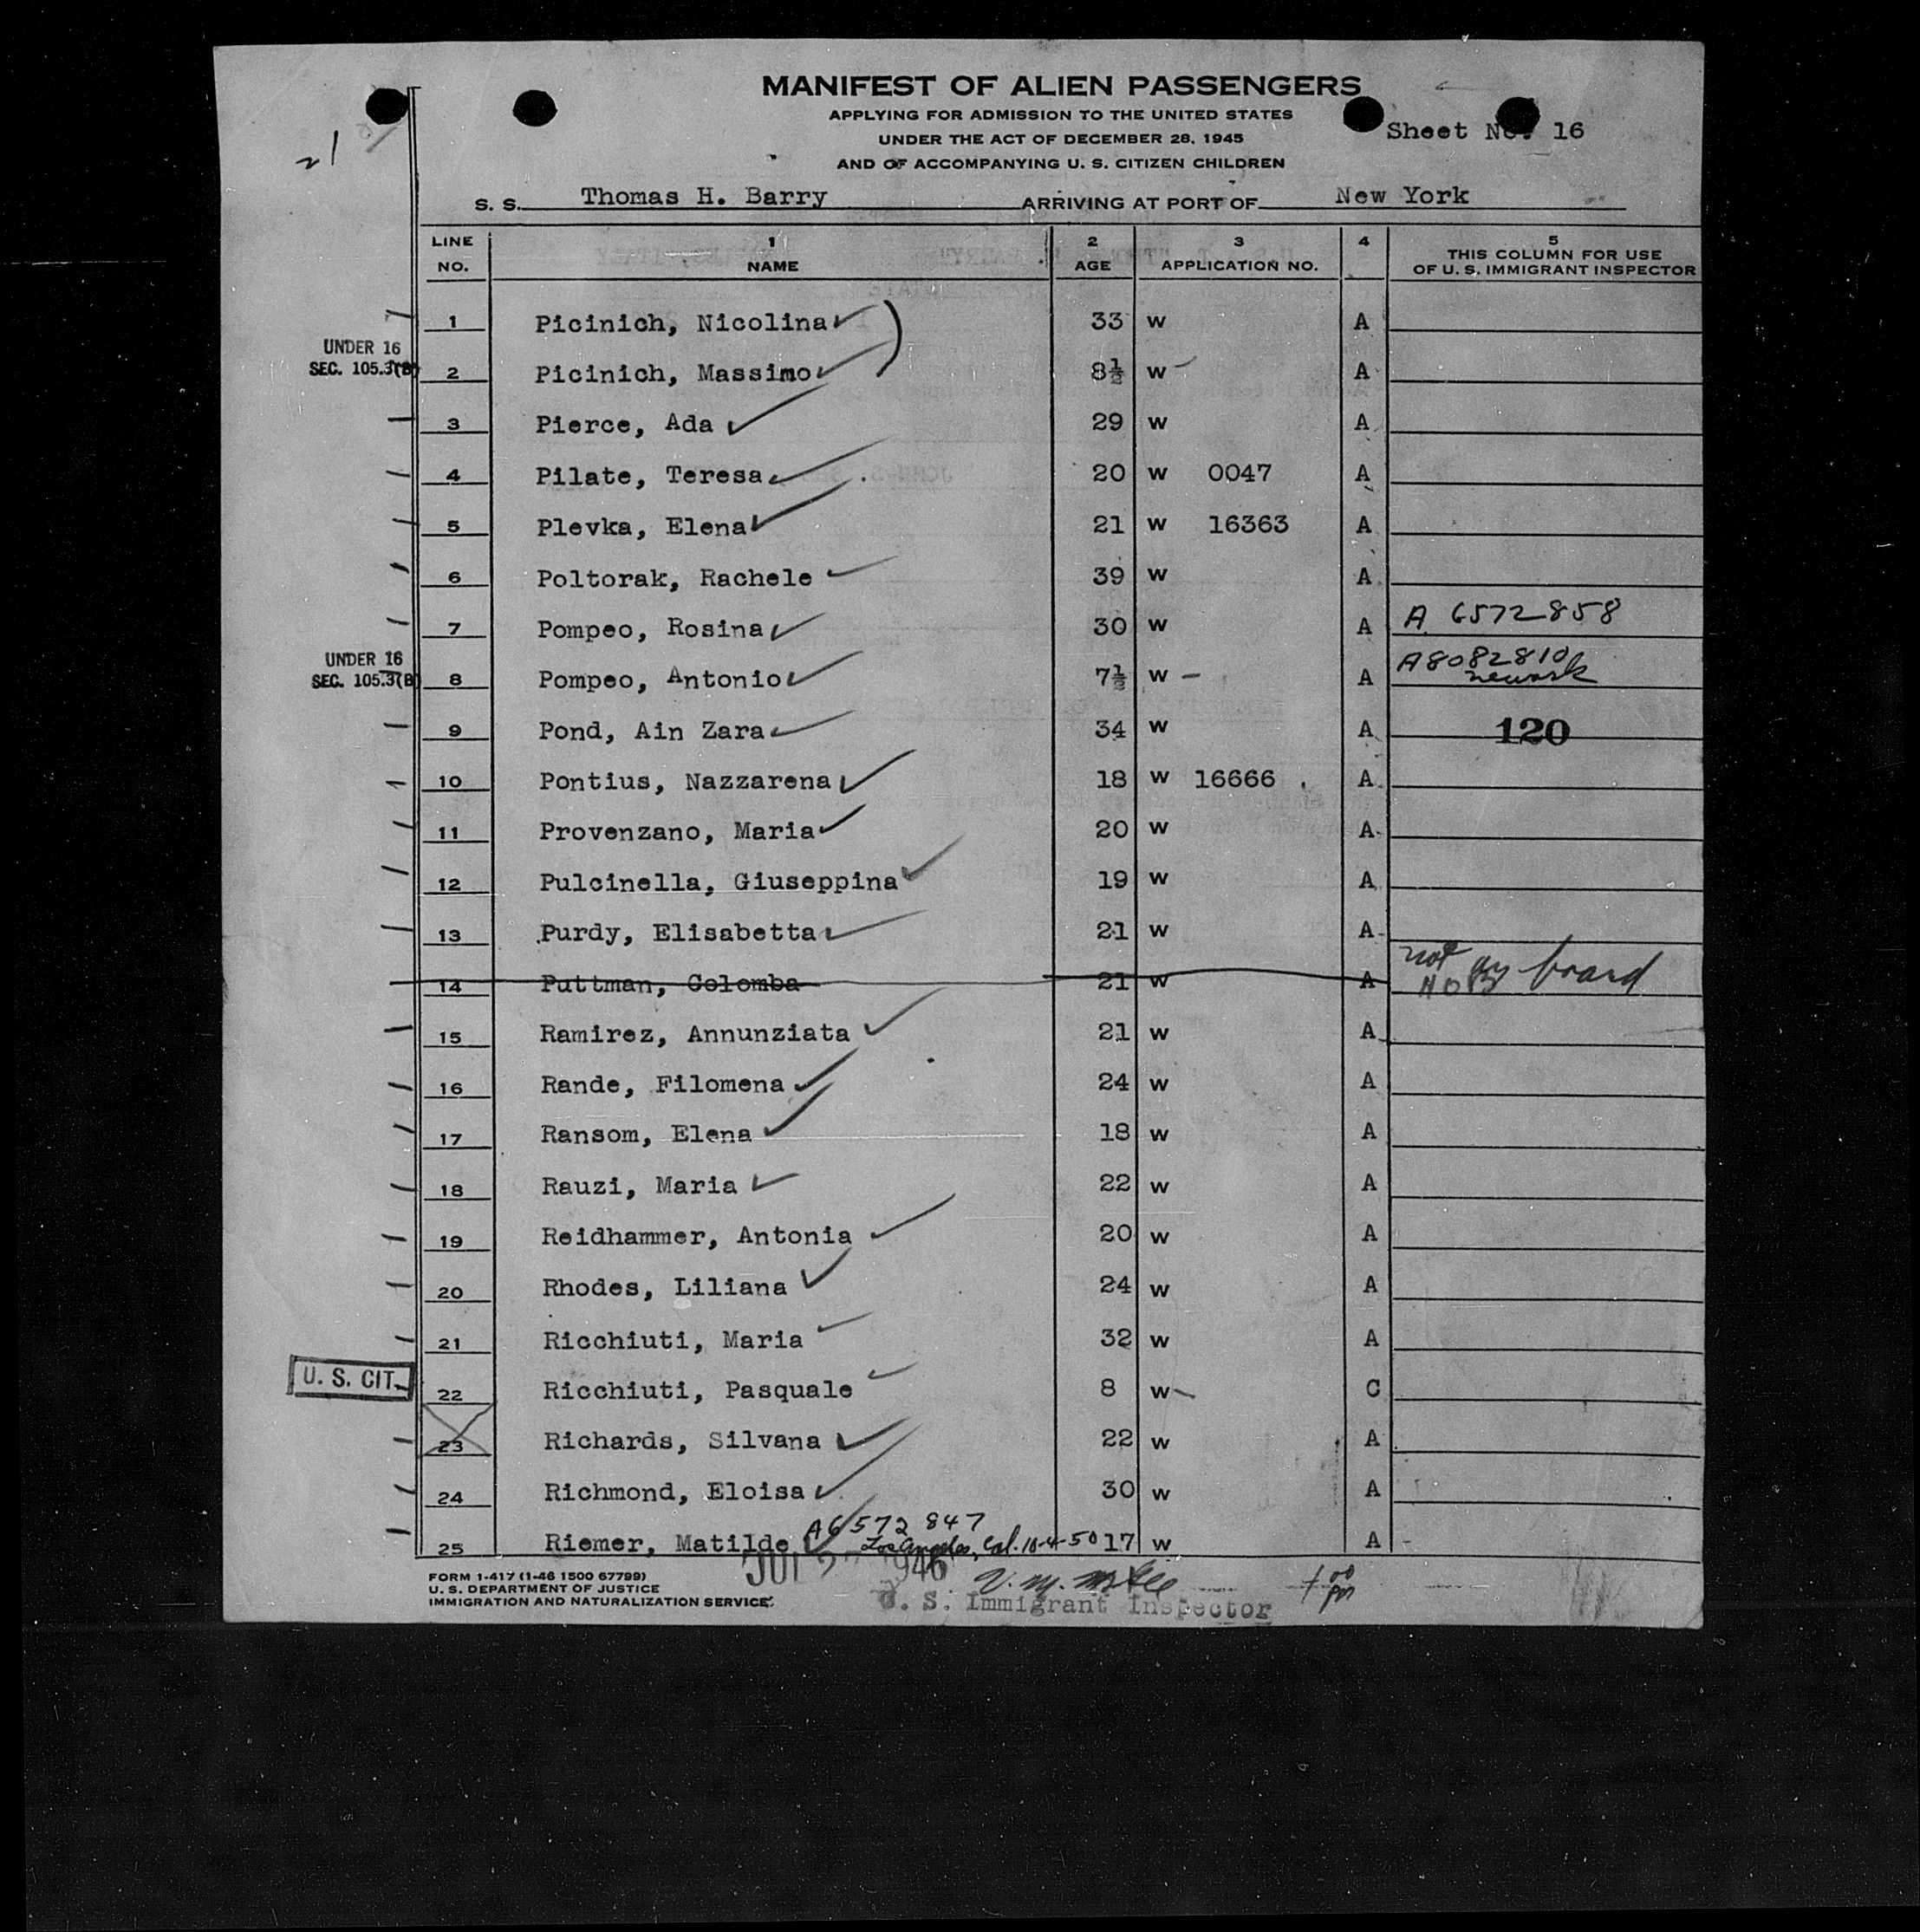 MANIFEST OF ALIEN PASSENGERS
APPLYING FOR ADMISSION TO THE UNITED STATES
UNDER THE ACT OF DECEMBER 28, 1945
AND OF ACCOMPANYING U. S. CITIZEN CHILDREN
Sheet No. 16
21
S. S. Thomas H. Barry ARRIVING AT PORT OF New York
LINE NO. 1 NAME 2 AGE 3 APPLICATION NO. 4 5 THIS COLUMN FOR USE OF U. S. IMMIGRANT INSPECTOR
1 Picinich, Nicolina 33 W A
UNDER 16 SEC. 105.3(B) 2 Picinich, Massimo 8½ W A
3 Pierce, Ada 29 W A
4 Pilate, Teresa 20 W 0047 A
5 Plevka, Elena 21 W 16363 A
6 Poltorak, Rachele 39 W A
7 Pompeo, Rosina 30 W A A 6572858
UNDER 16 SEC. 105.3(B) 8 Pompeo, Antonio 7½ W - A A8082810 Newark
9 Pond, Ain Zara 34 W A 120
10 Pontius, Nazzarena 18 W 16666 A
11 Provenzano, Maria 20 W A
12 Pulcinella, Giuseppina 19 W A
13 Purdy, Elisabetta 21 W A
14 Puttman, Colomba 21 W A not on board
15 Ramirez, Annunziata 21 W A
16 Rande, Filomena 24 W A
17 Ransom, Elena 18 W A
18 Rauzi, Maria 22 W A
19 Reidhammer, Antonia 20 W A
20 Rhodes, Liliana 24 W A
21 Ricchiuti, Maria 32 W A
U. S. CIT. 22 Ricchiuti, Pasquale 8 W C
23 Richards, Silvana 22 W A
24 Richmond, Eloisa 30 W A
25 Riemer, Matilde A6572 847 Los Angeles, Cal. 10-4-50 17 W A
FORM I-417 (1-46 1500 67799)
U. S. DEPARTMENT OF JUSTICE
IMMIGRATION AND NATURALIZATION SERVICE
JUL 27 1946
U. S. Immigrant Inspector